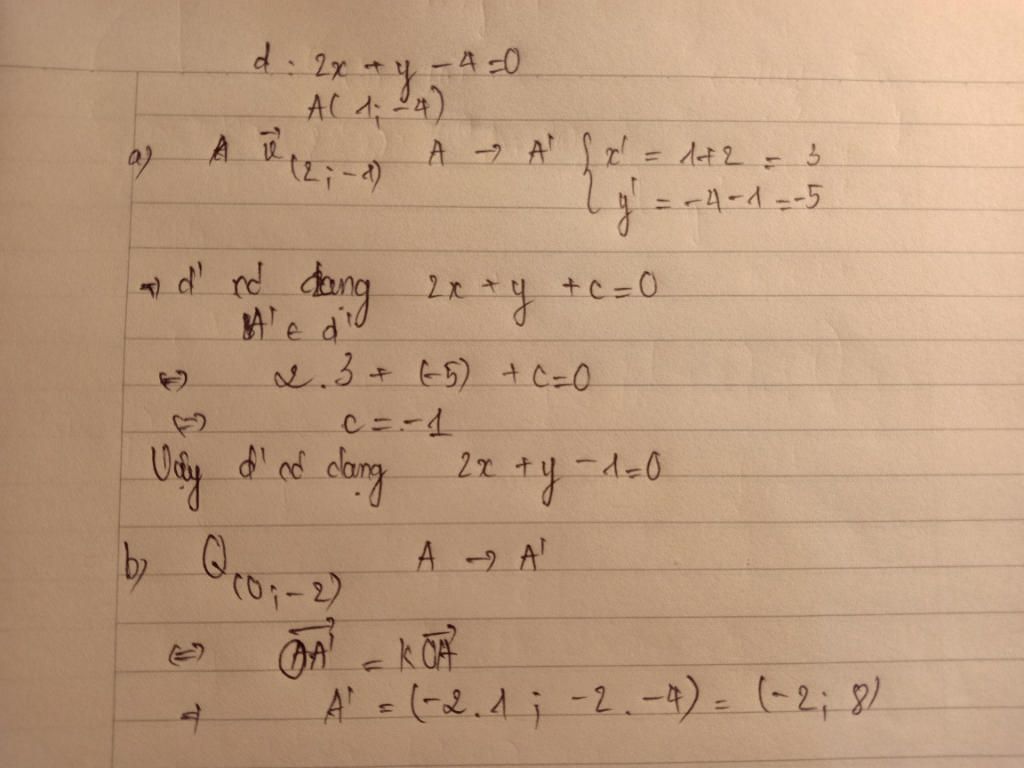 d : 2x + y - 4 = 0
A( 1; -4)
a) A v⃗ (2 ; -1) A → A' { x' = 1+2 = 3
y' = -4 - 1 = -5
→ d' có dạng 2x + y + c = 0
A' ∈ d'
⇔ 2.3 + (-5) + c = 0
⇔ c = -1
Vậy d' có dạng 2x + y - 1 = 0
b) Q (0; -2) A → A'
⇔ OA'⃗ = k OA⃗
⇒ A' = (-2.1 ; -2.-4) = (-2; 8)